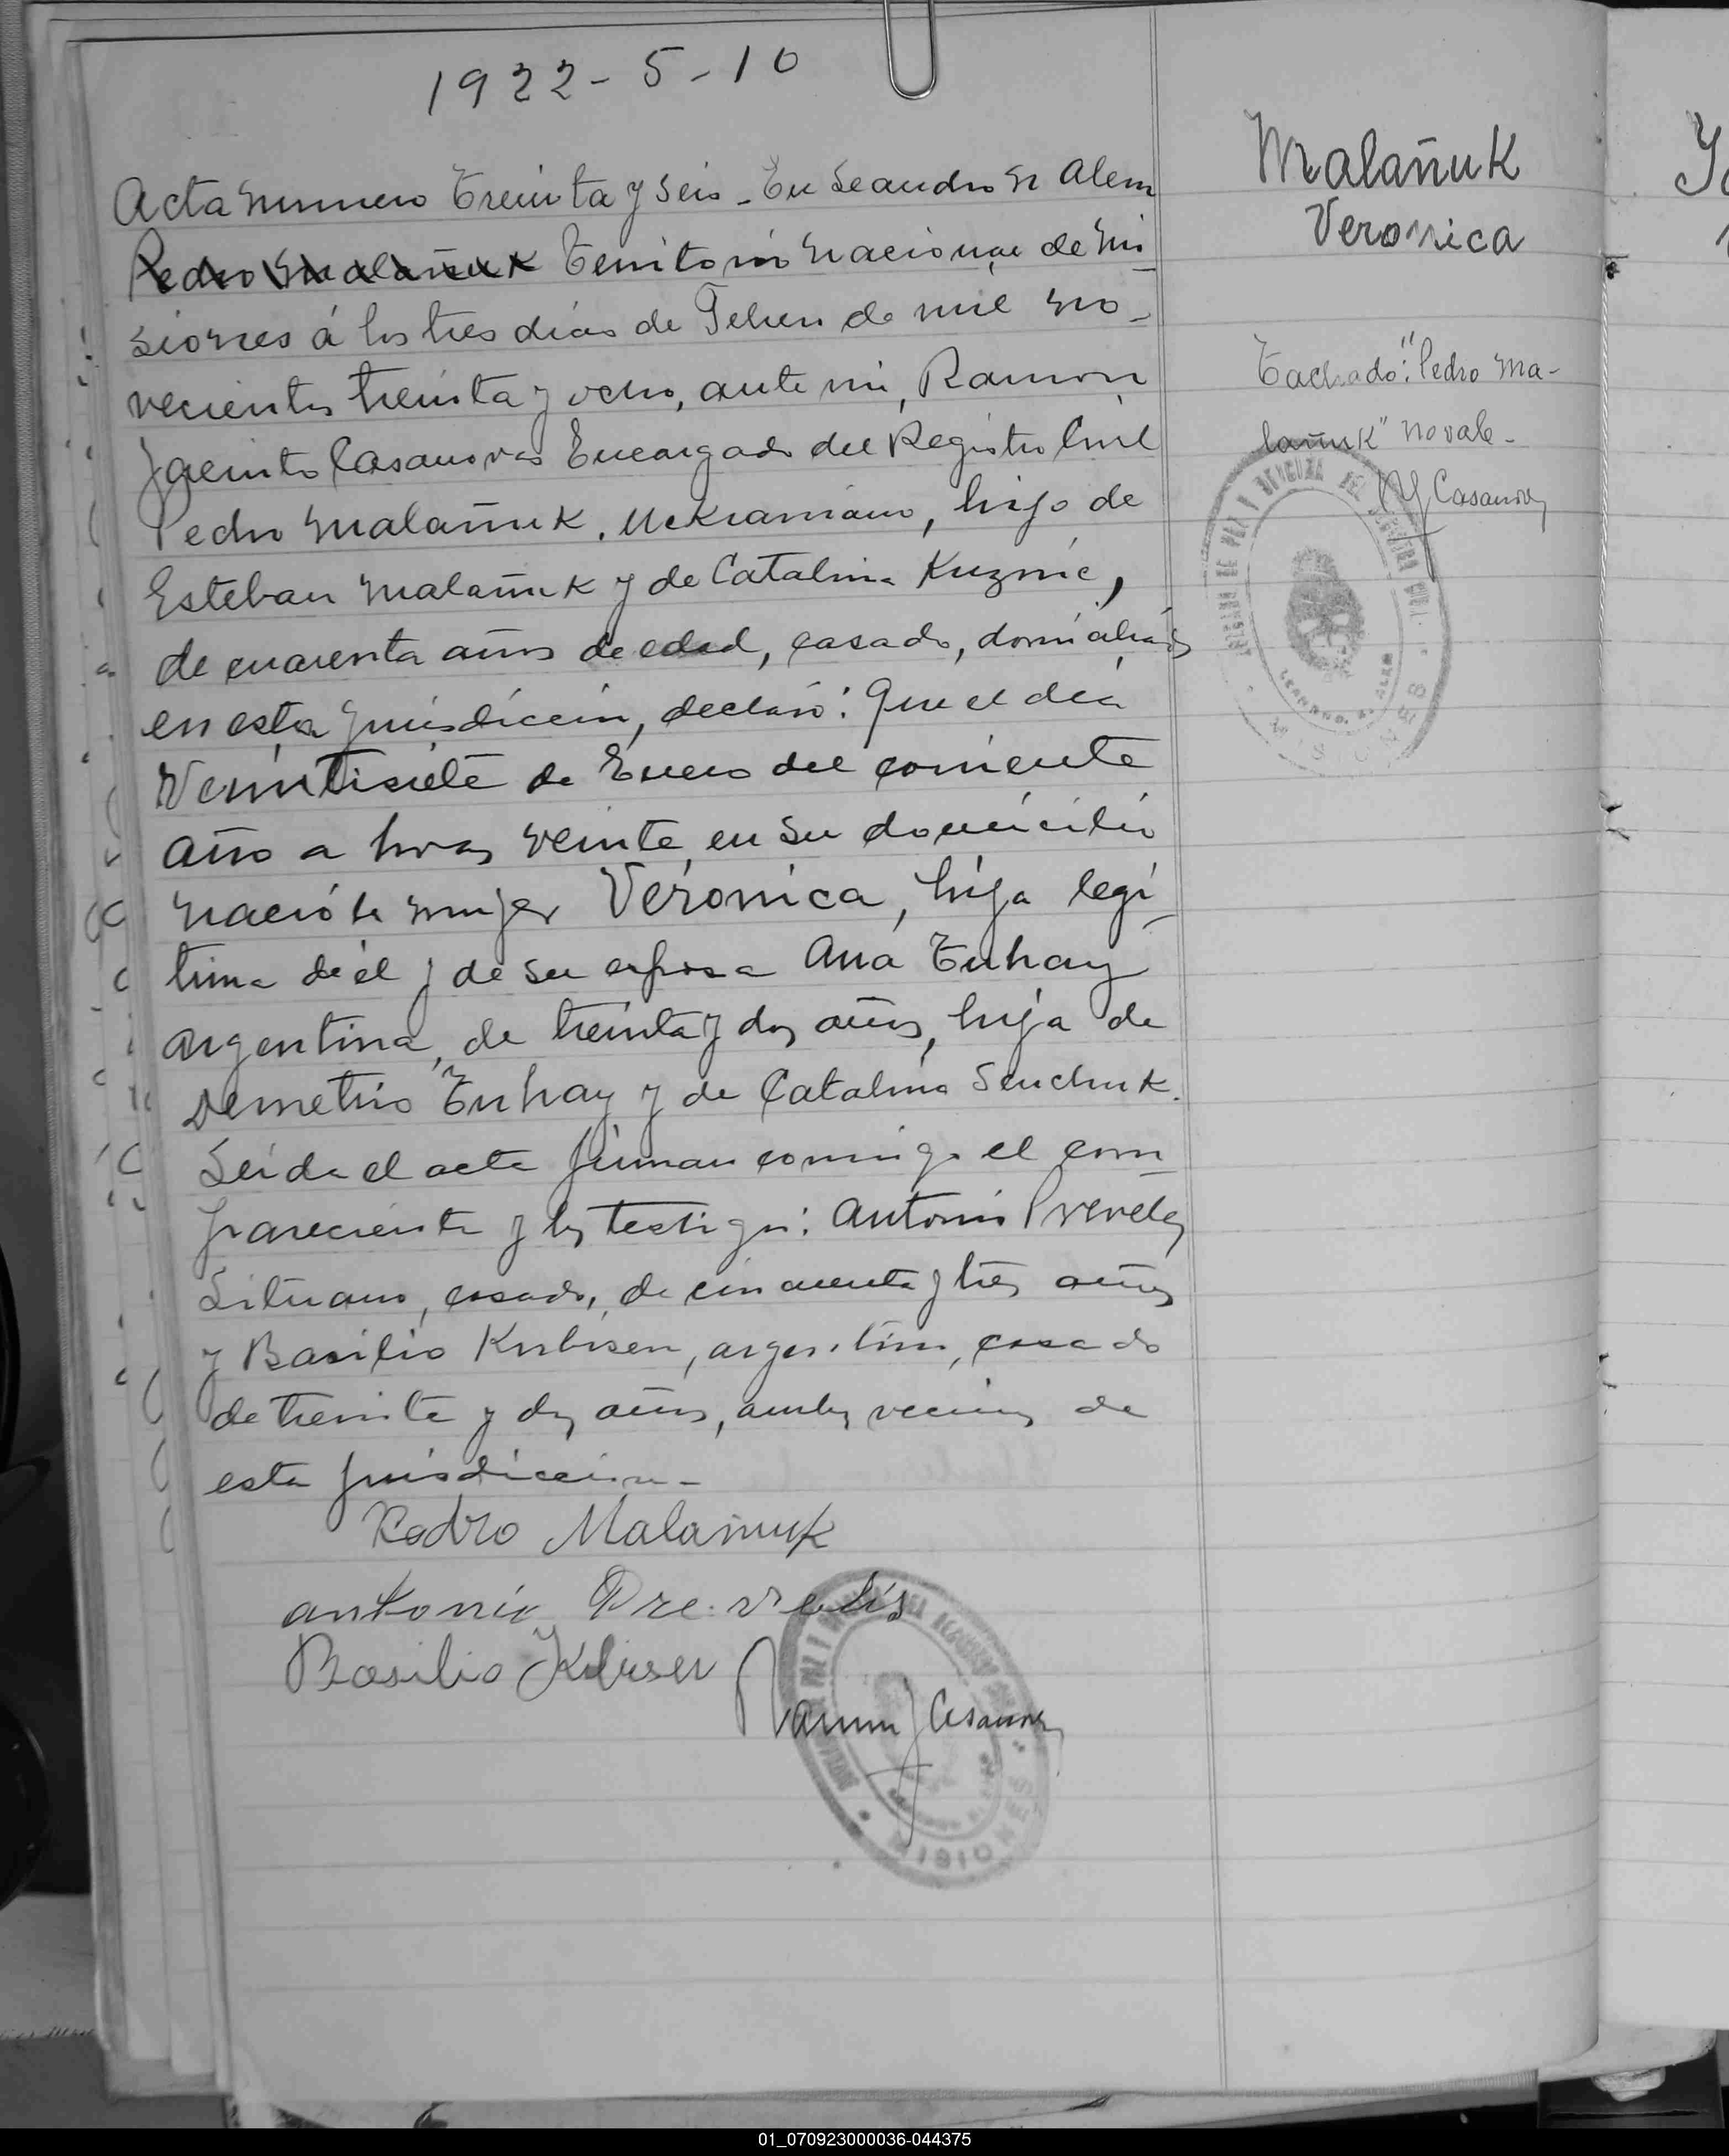 1922-5-10
Acta numero Treinta y seis - En Leandro N Alem
Pedro Malañuk Territorio Nacional de Mi
siones á los tres días de Febrero de mil no-
vecientos treinta y ocho, ante mi, Ramon
Jacinto Casanovas Encargado del Registro Civil
Pedro Malañuk, Uckraniano, hijo de
Esteban Malañuk y de Catalina Kuzmic,
de cuarenta años de edad, casado, domiciliado
en esta jurisdiccion, declaró: Que el día
Veintisiete de Enero del corriente
año a horas veinte, en su domicilio
nació la mujer Veronica, hija legi
tima de él y de su esposa Ana Tuhay
argentina, de treinta y dos años, hija de
Demetrio Tuhay y de Catalina Senchuk.
Leida el acta firman conmigo el com
pareciente y los testigos: Antonio Prevelis
Lituano, casado, de cincuenta y tres años
y Basilio Kubisen, argentino, casado
de treinta y dos años, ambos vecinos de
esta jurisdiccion -
Pedro Malanuk
antonio Pre.velis
Basilio
Ramon J Casanovas
MISIONES
Malañuk
Veronica
Tachado: "Pedro Ma-
lañuk" no vale -
RJ Casanovas
MISIONES
01_070923000036-044375